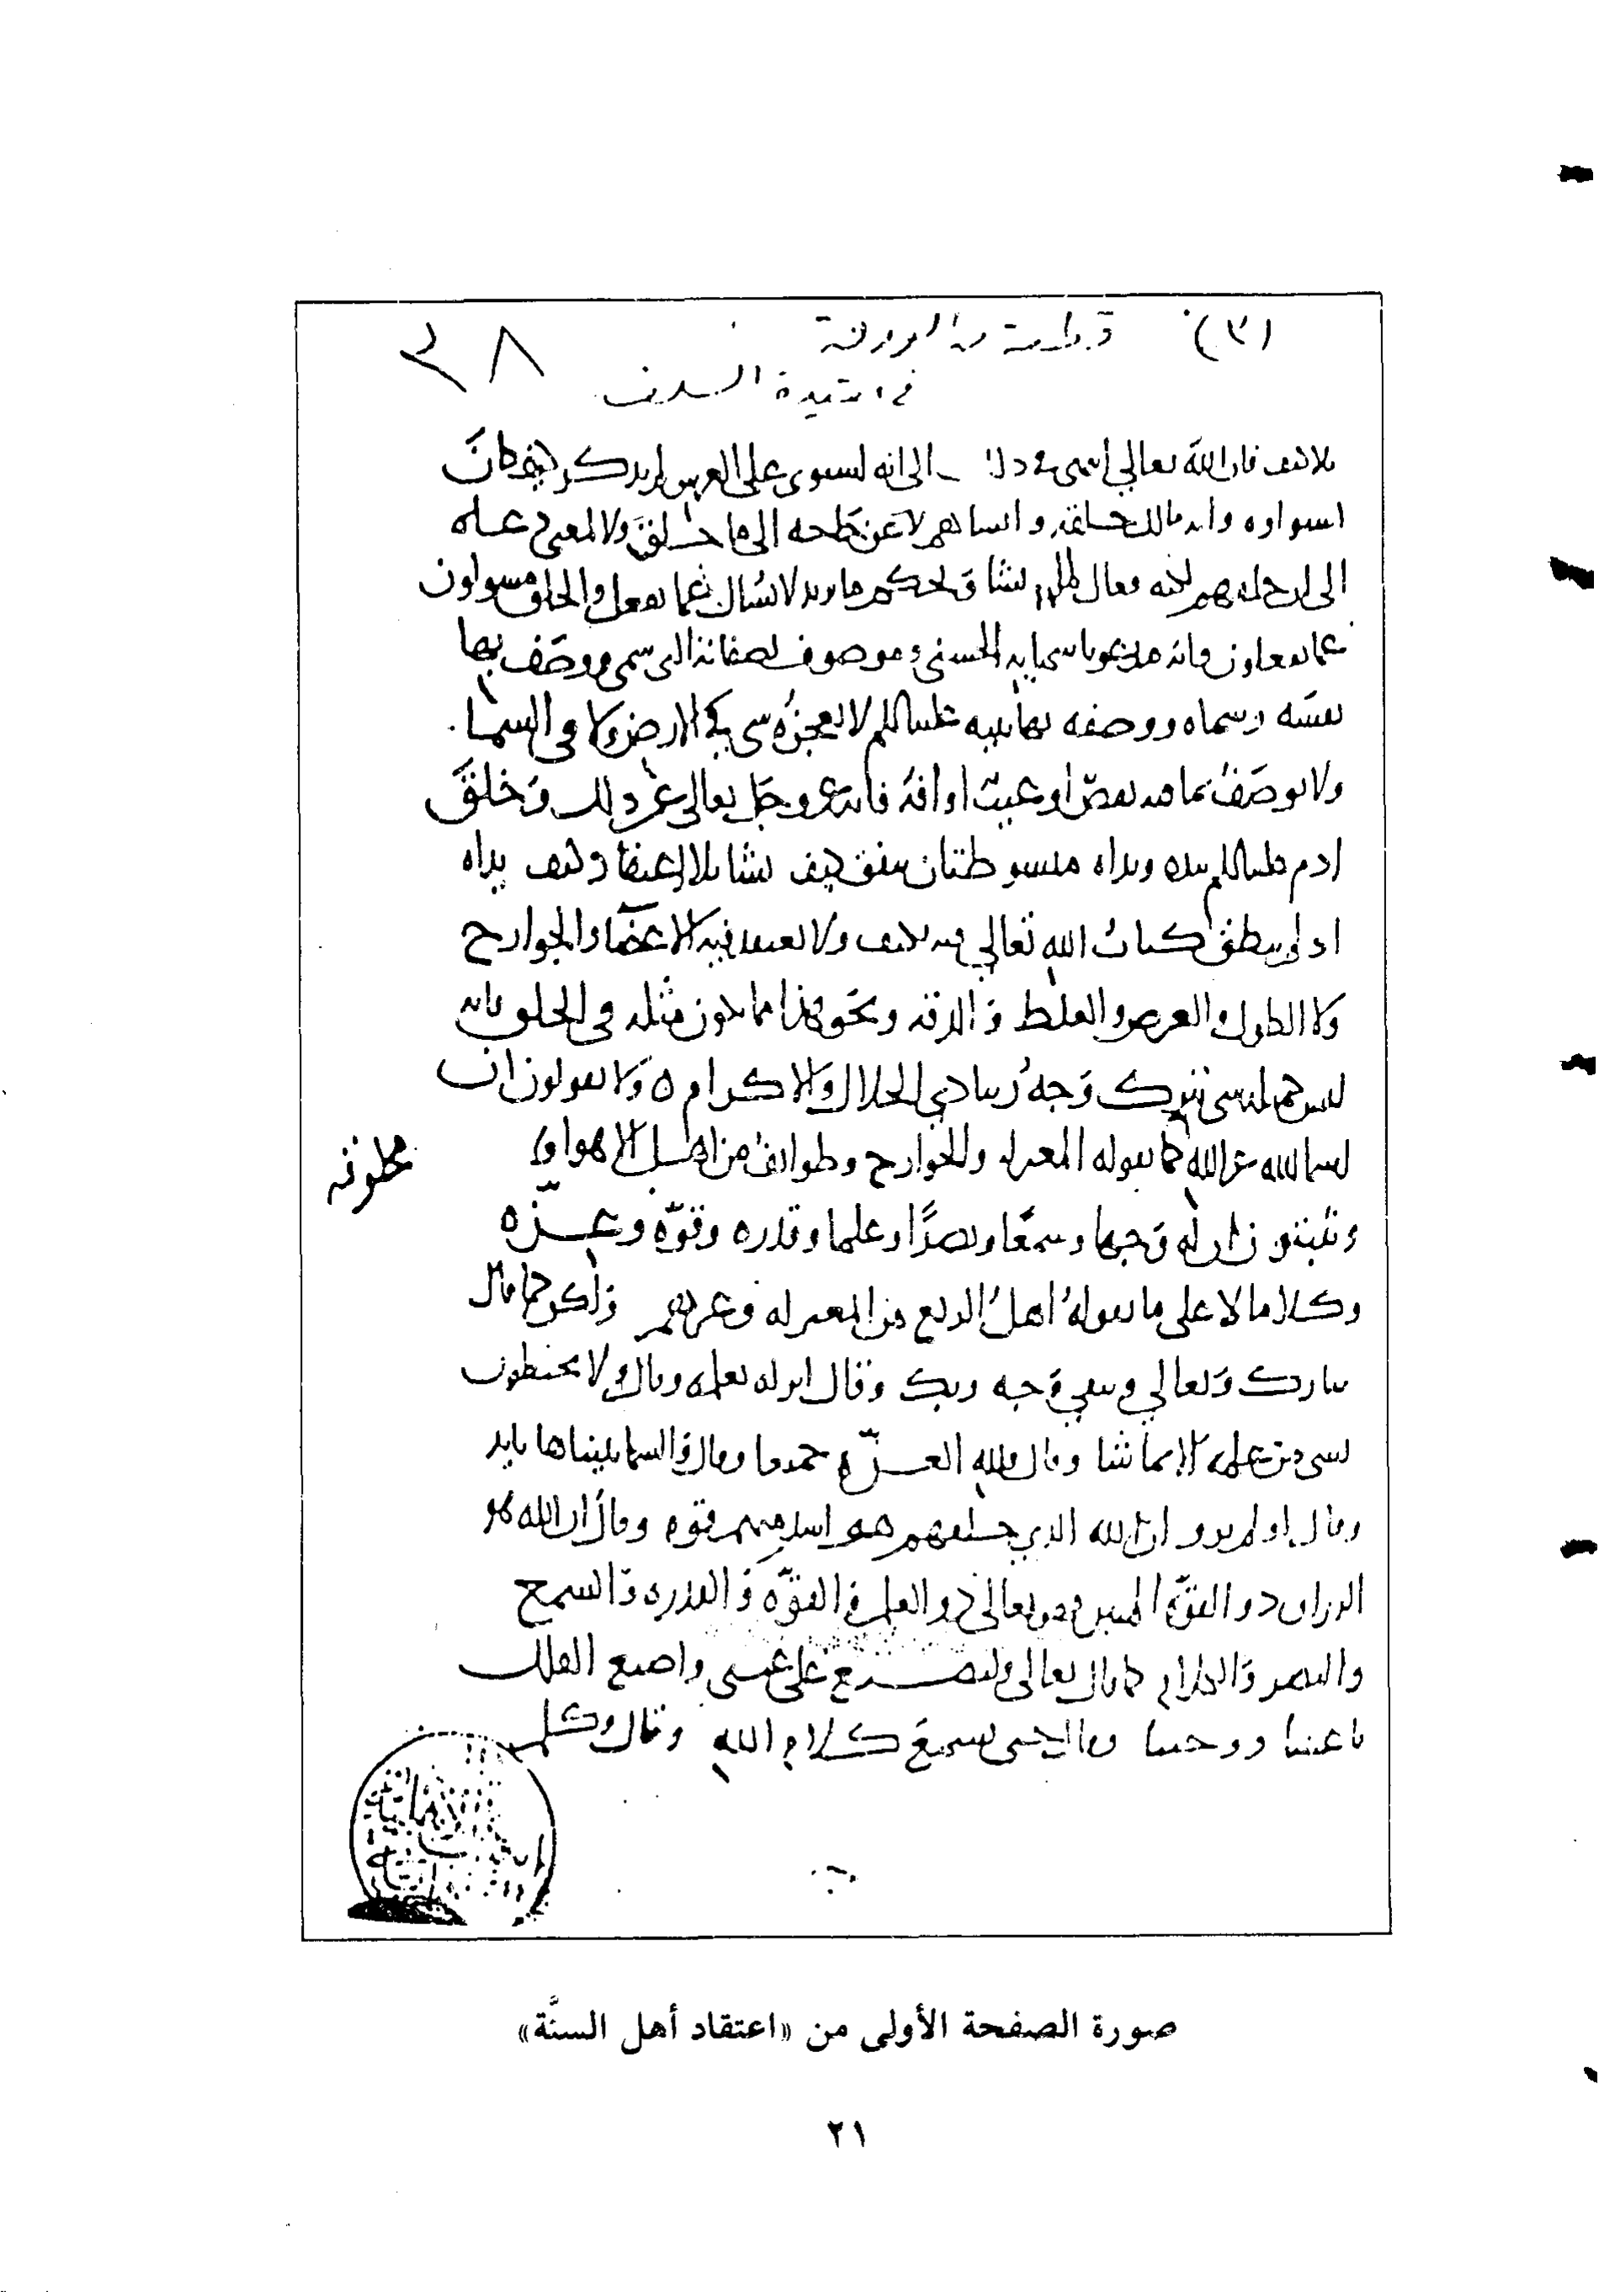 (٣)
في عقيدة السلف
بلا كيف فان الله تعالى انتهى من ذلك الى انه استوى على العرش ولم يذكر كيف كان
استواوه وانه مالك خلقه وانشاهم لا عن حاجه الى ما خلق ولا لمعنى دعاه
الى ان خلقهم لكنه فعال لما يشا ويحكم ما يريد لا يسال عما يفعل والخلق مسولون
عما يفعلون وانه مدعو باسمايه الحسنى وموصوف بصفاته التي سمى ووصف بها
نفسه وسماه ووصفه بها نبيه عليه السلم لا يعجزه شي في الارض ولا في السما
ولا يوصف بما فيه نقص او عيب او افة فانه عز وجل تعالى عن ذلك وخلق
ادم عليه السلم بيده ويداه مبسوطتان ينفق كيف يشا بلا اعتقاد كيف يداه
اذ لم ينطق كتاب الله تعالى فيه بكيف ولا يعتقد فيه الاعضا والجوارح
ولا الطول والعرض والغلظ والدقه ونحو هذا مما يكون مثله في الخلق فانه
ليس كمثله شي تبرك وجه ربنا ذي الجلال والاكرام ه ولا يقولون ان
اسما الله غير الله كما يقوله المعتزله والخوارج وطوائف من اهل الاهوا
مخلوقه
ويثبتون ان له وجها وسمعا وبصرا وعلما وقدره وقوّه وعزه
وكلاما لا على ما يقوله اهل الزيغ من المعتزله وغيرهم ولكن كما قال
تبارك وتعالى ويبقى وجه ربك وقال انزله بعلمه وقال ولا يحيطون
بشي من علمه الا بما شا وقال فلله العزّة جميعا وقال والسما بنيناها بايد
وقال او لم يروا ان الله الذي خلقهم هو اشد منهم قوه وقال ان الله هو
الرزاق ذو القوّة المتين فهو تعالى ذو العلم والقوّه والقدره والسمع
والبصر والكلام كما قال تعالى ولتصنع على عيني واصنع الفلك
باعيننا ووحينا وقال حتى يسمع كلام الله وقال وكلم
صورة الصفحة الأولى من «اعتقاد أهل السنَّة»
٢١